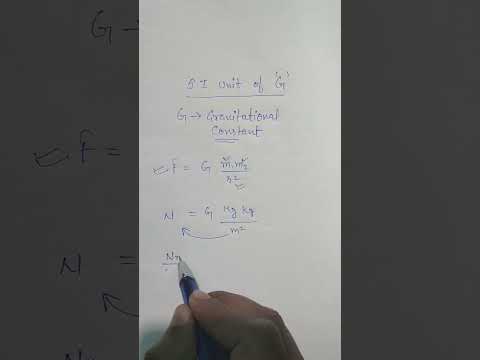 S.I Unit of 'G'
G → Gravitational
Constant
F = G m₁m₂/r²
N = G kg kg/m²
Nm